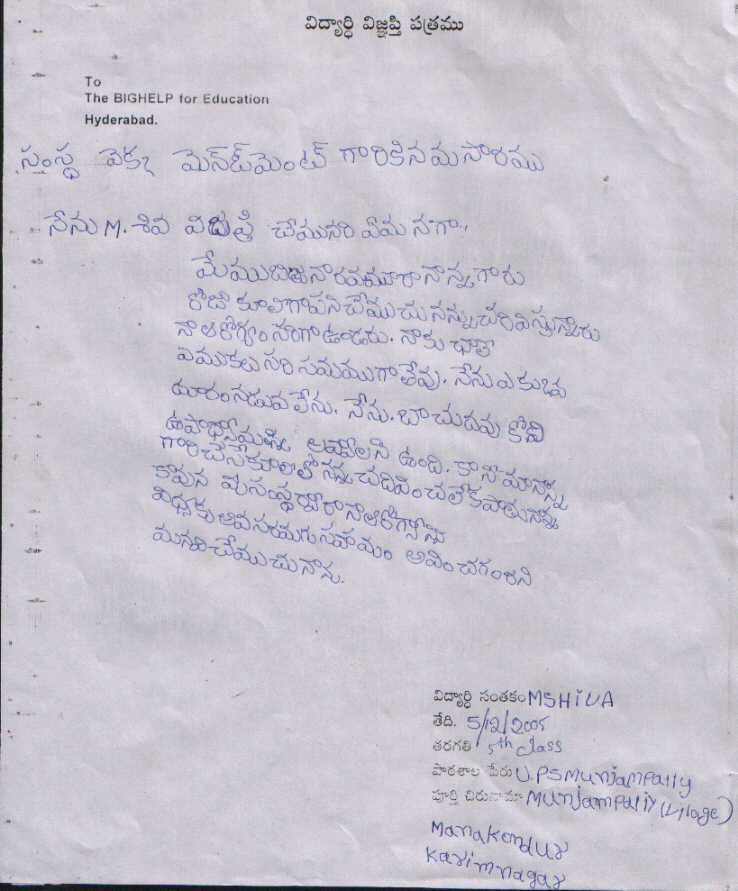 విద్యార్ధి విజ్ఞప్తి పత్రము
To
The BIGHELP for Education
Hyderabad.
సంస్థ వెక్క మెనేట్‌మెంట్ గారికి నమసారము
నేను M. శివ విజ్ఞప్తి చేమునది ఏమనగా,
మేము నాన్న గారు
రోజూ కూలిగా పని చేముచు నన్ను చదివిస్తున్నారు
నా ఆరోగ్యం సరిగా ఉండదు. నాకు ఛాతి
ఏముకలు సరి సమముగా లేవు. నేను ఎకువ
దూరం నడువ లేను. నేను బా చుదవు కోని
ఉపాధ్యాయున్ని అవ్వాలని ఉంది. కాని మా నాన్న
గారి చేసే కూలితో నన్ను చదివించ లేక పోతున్నాన్న
కావున మీ సంస్థ ద్వారా నా ఆరోగ్యాన్ని
విధ్యకు అవసరమగు సహాయం అందించగలరని
మనవి చేముచునాన్ను.
విద్యార్ధి సంతకం MSHIVA
తేది. 5/12/2005
తరగతి 5th class
పాఠశాల పేరు U.P.S Munjampally
పూర్తి చిరునామా Munjampally (Village)
Manakondur
Karimnagar